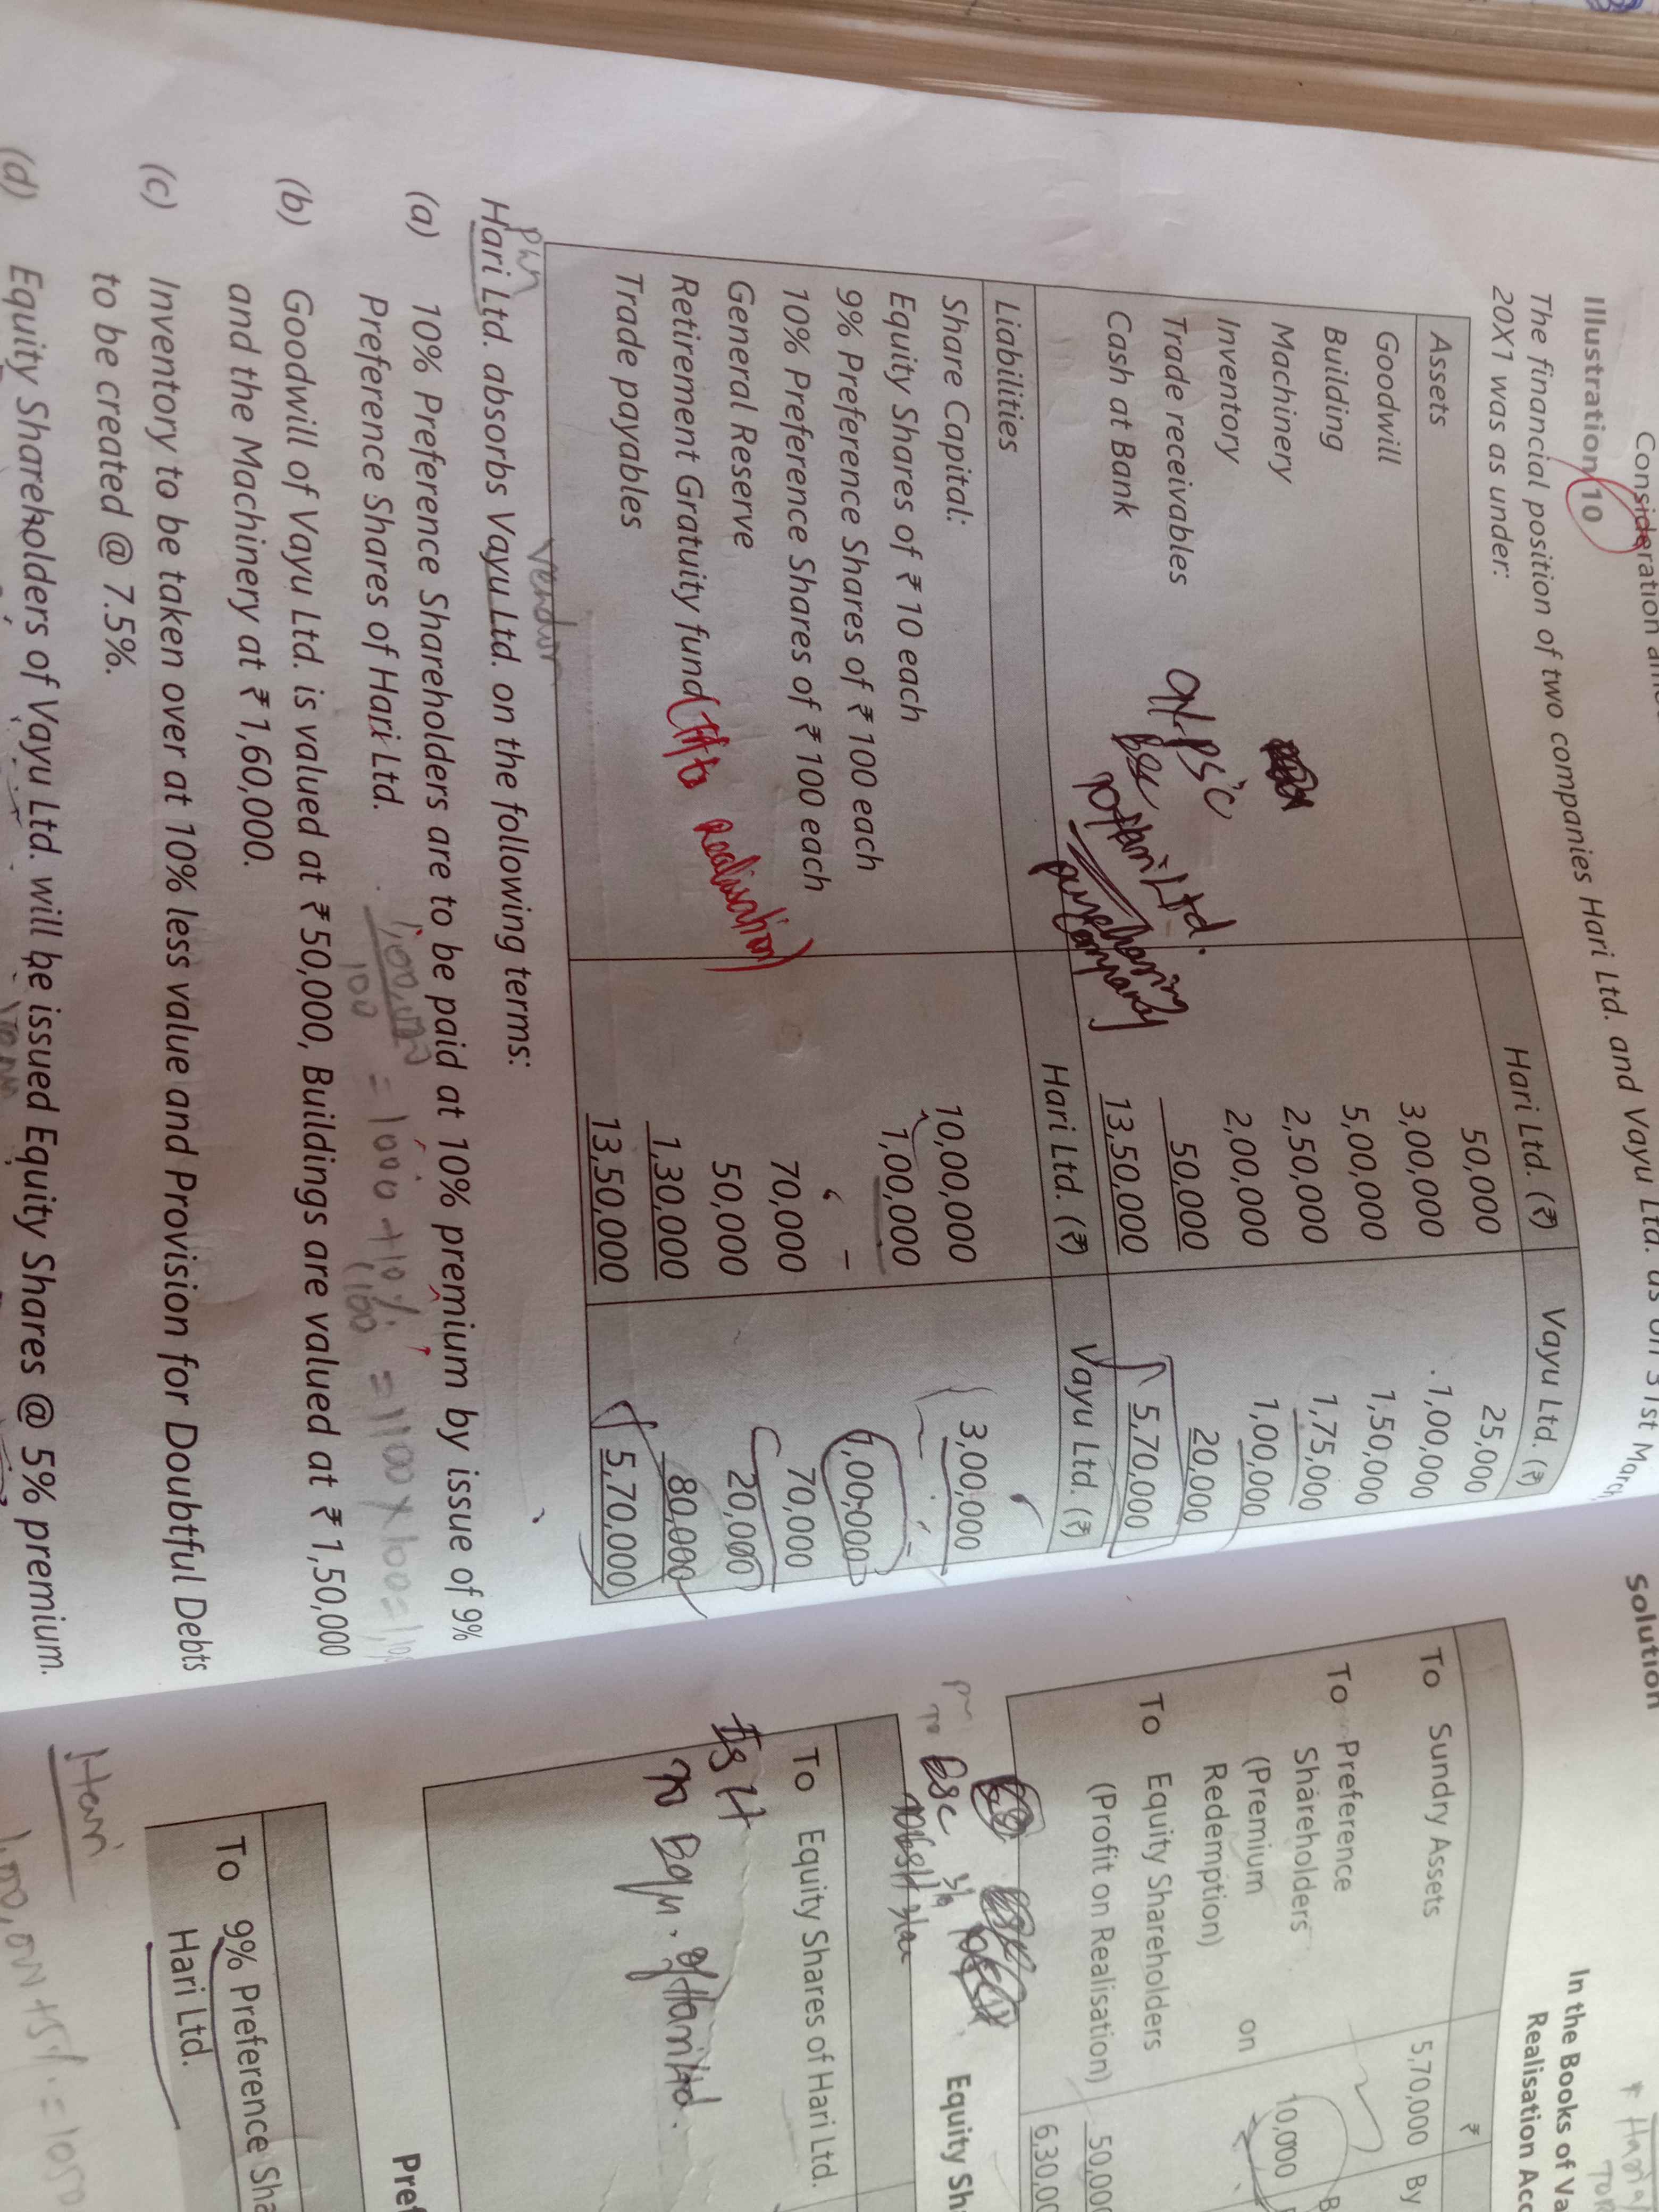 Consideration
Illustration 10
The financial position of two companies Hari Ltd. and Vayu Ltd. as on 31st March,
20X1 was as under:
Assets Hari Ltd. (₹) Vayu Ltd. (₹)
Goodwill 50,000 25,000
Building 3,00,000 1,00,000
Machinery 5,00,000 1,50,000
Inventory 2,50,000 1,75,000
Trade receivables 2,00,000 1,00,000
Cash at Bank 50,000 20,000
13,50,000 5,70,000
Liabilities Hari Ltd. (₹) Vayu Ltd. (₹)
Share Capital:
Equity Shares of ₹ 10 each 10,00,000 3,00,000
9% Preference Shares of ₹ 100 each 1,00,000 -
10% Preference Shares of ₹ 100 each - 1,00,000
General Reserve 70,000 70,000
Retirement Gratuity fund 50,000 20,000
Trade payables 1,30,000 80,000
13,50,000 5,70,000
9% PSC
Hari Ltd.
purchasing
company
realisation)
vendor
Hari Ltd. absorbs Vayu Ltd. on the following terms:
(a) 10% Preference Shareholders are to be paid at 10% premium by issue of 9%
Preference Shares of Hari Ltd.
1,00,000
100
= 1000 + 10%
= 1100 x 100 =
(b) Goodwill of Vayu Ltd. is valued at ₹ 50,000, Buildings are valued at ₹ 1,50,000
and the Machinery at ₹ 1,60,000.
(c) Inventory to be taken over at 10% less value and Provision for Doubtful Debts
to be created @ 7.5%.
(d) Equity Shareholders of Vayu Ltd. will be issued Equity Shares @ 5% premium.
Solution
In the Books of Va
Realisation Acc
₹
To Sundry Assets 5,70,000 By
To Preference
Shareholders
(Premium on
Redemption) 10,000
To Equity Shareholders
(Profit on Realisation) 50,000
6,30,00
To ESC
Equity Sh
To Equity Shares of Hari Ltd.
To Equ. of Hari Ltd.
Pref
To 9% Preference Sha
Hari Ltd.
Hari